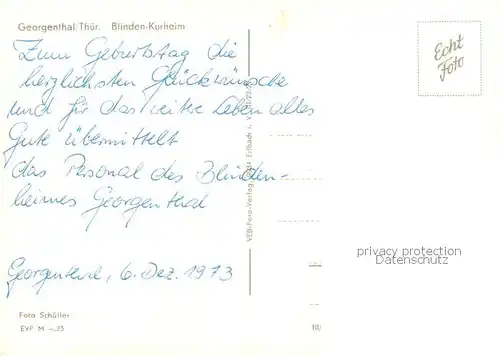 Georgenthal Thür. Blinden-Kurheim
Echt
Foto
Zum Geburtstag die
herzlichsten Glückwünsche
und für das weitere Leben alles
Gute übermittelt
das Personal des Blinden-
heimes Georgenthal
Georgenthal, 6. Dez. 1973
privacy protection
Datenschutz
Foto Schüller
EVP M -,25
VEB Foto-Verlag Erlbach i. V.